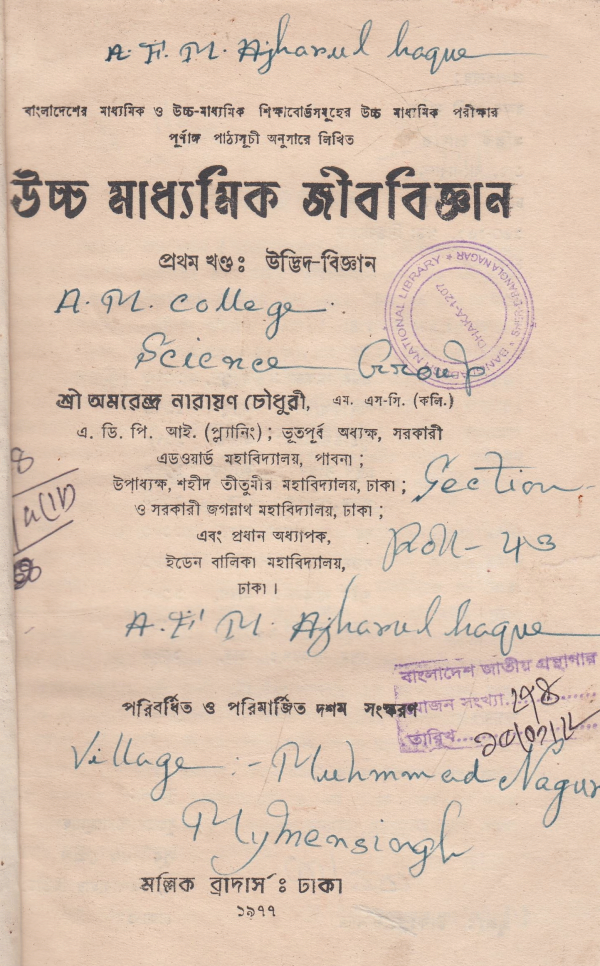 A. F. M. Azharul haque
বাংলাদেশের মাধ্যমিক ও উচ্চ-মাধ্যমিক শিক্ষাবোর্ডসমূহের উচ্চ মাধ্যমিক পরীক্ষার
পূর্ণাঙ্গ পাঠ্যসূচী অনুসারে লিখিত
উচ্চ মাধ্যমিক জীববিজ্ঞান
প্রথম খণ্ড: উদ্ভিদ-বিজ্ঞান
NATIONAL LIBRARY * SHER-E-BANGLA NAGAR
DHAKA-1207
A. M. College
Science Group
শ্রী অমরেন্দ্র নারায়ণ চৌধুরী, এম. এস-সি. (কলি.)
এ. ডি. পি. আই. (প্ল্যানিং) ; ভূতপূর্ব অধ্যক্ষ, সরকারী
এডওয়ার্ড মহাবিদ্যালয়, পাবনা ;
উপাধ্যক্ষ, শহীদ তীতুমীর মহাবিদ্যালয়, ঢাকা ;
Section-
ও সরকারী জগন্নাথ মহাবিদ্যালয়, ঢাকা ;
এবং প্রধান অধ্যাপক,
Roll - 43
ইডেন বালিকা মহাবিদ্যালয়,
ঢাকা ।
A. F. M. Azharul haque
বাংলাদেশ জাতীয় গ্রন্থাগার
যোজন সংখ্যা
তারিখ
পরিবর্ধিত ও পরিমার্জিত দশম সংস্করণ
Village :- Muhmmad Nagur
Mymensiongh
মল্লিক ব্রাদার্স : ঢাকা
১৯৭৭